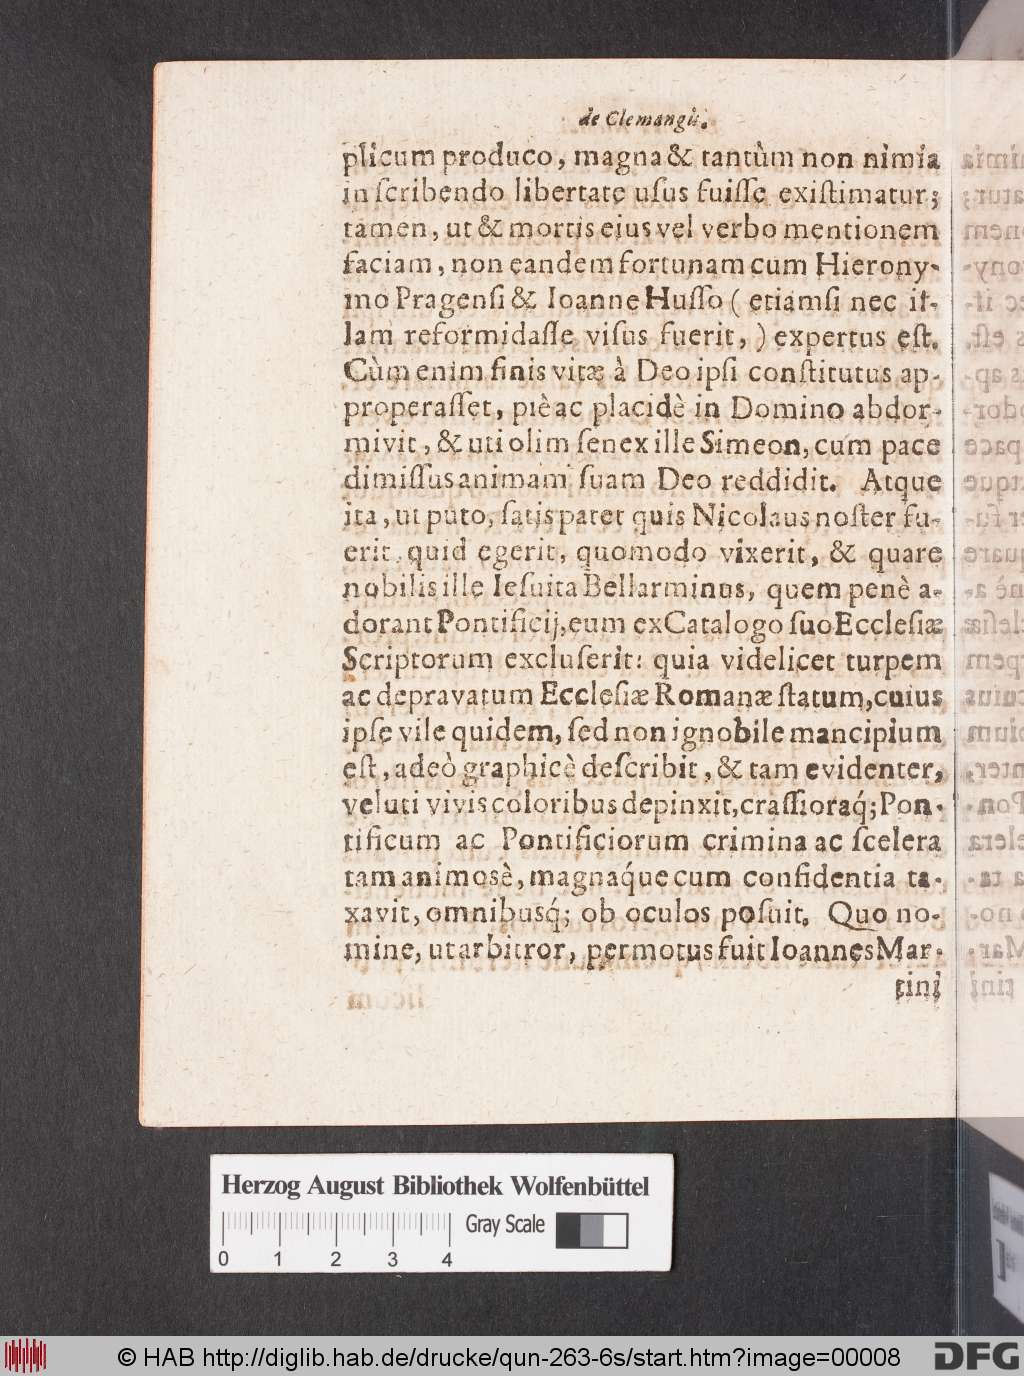 de Clemangiis.
plicum produco, magna & tantùm non nimia
in ſcribendo libertate uſus fuiſſe exiſtimatur;
tamen, ut & mortis eius vel verbo mentionem
faciam, non eandem fortunam cum Hierony-
mo Pragenſi & Ioanne Huſſo ( etiamſi nec il-
lam reformidaſſe viſus fuerit, ) expertus eſt.
Cùm enim finis vitæ à Deo ipſi conſtitutus ap-
properaſſet, piè ac placidè in Domino abdor-
mivit, & uti olim ſenex ille Simeon, cum pace
dimiſſus animam ſuam Deo reddidit. Atque
ita, ut puto, ſatis patet quis Nicolaus noſter fu-
erit, quid egerit, quomodo vixerit, & quare
nobilis ille Ieſuita Bellarminus, quem penè a-
dorant Pontificij, eum ex Catalogo ſuo Eccleſiæ
Scriptorum excluſerit: quia videlicet turpem
ac depravatum Eccleſiæ Romanæ ſtatum, cuius
ipſe vile quidem, ſed non ignobile mancipium
eſt, adeò graphicè deſcribit, & tam evidenter,
veluti vivis coloribus depinxit, craſſioraq́; Pon-
tificum ac Pontificiorum crimina ac ſcelera
tam animosè, magnaq́ue cum confidentia ta-
xavit, omnibusq́; ob oculos poſuit. Quo no-
mine, ut arbitror, permotus fuit Ioannes Mar-
tini
Herzog August Bibliothek Wolfenbüttel
0 1 2 3 4 Gray Scale
© HAB http://diglib.hab.de/drucke/qun-263-6s/start.htm?image=00008 DFG